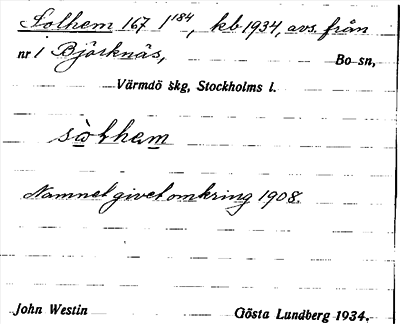 Solhem 167 1¹⁸⁴, kb 1934, avs. från
nr 1 Björknäs, Bo sn,
Värmdö skg, Stockholms l.
sòlhem
Namnet givet omkring 1908.
John Westin Gösta Lundberg 1934.